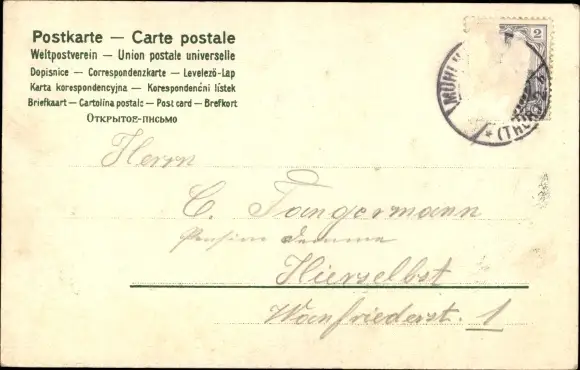 Postkarte — Carte postale
Weltpostverein — Union postale universelle
Dopisnice — Correspondenzkarte — Levelező-Lap
Karta korespondencyjna — Korespondenční lístek
Briefkaart — Cartolina postale — Post card — Brefkort
Открытое-письмо
2
MÜHL
* (THÜR
Herrn
C. Tangermann
Pension
Hierselbst
Wanfriederst. 1